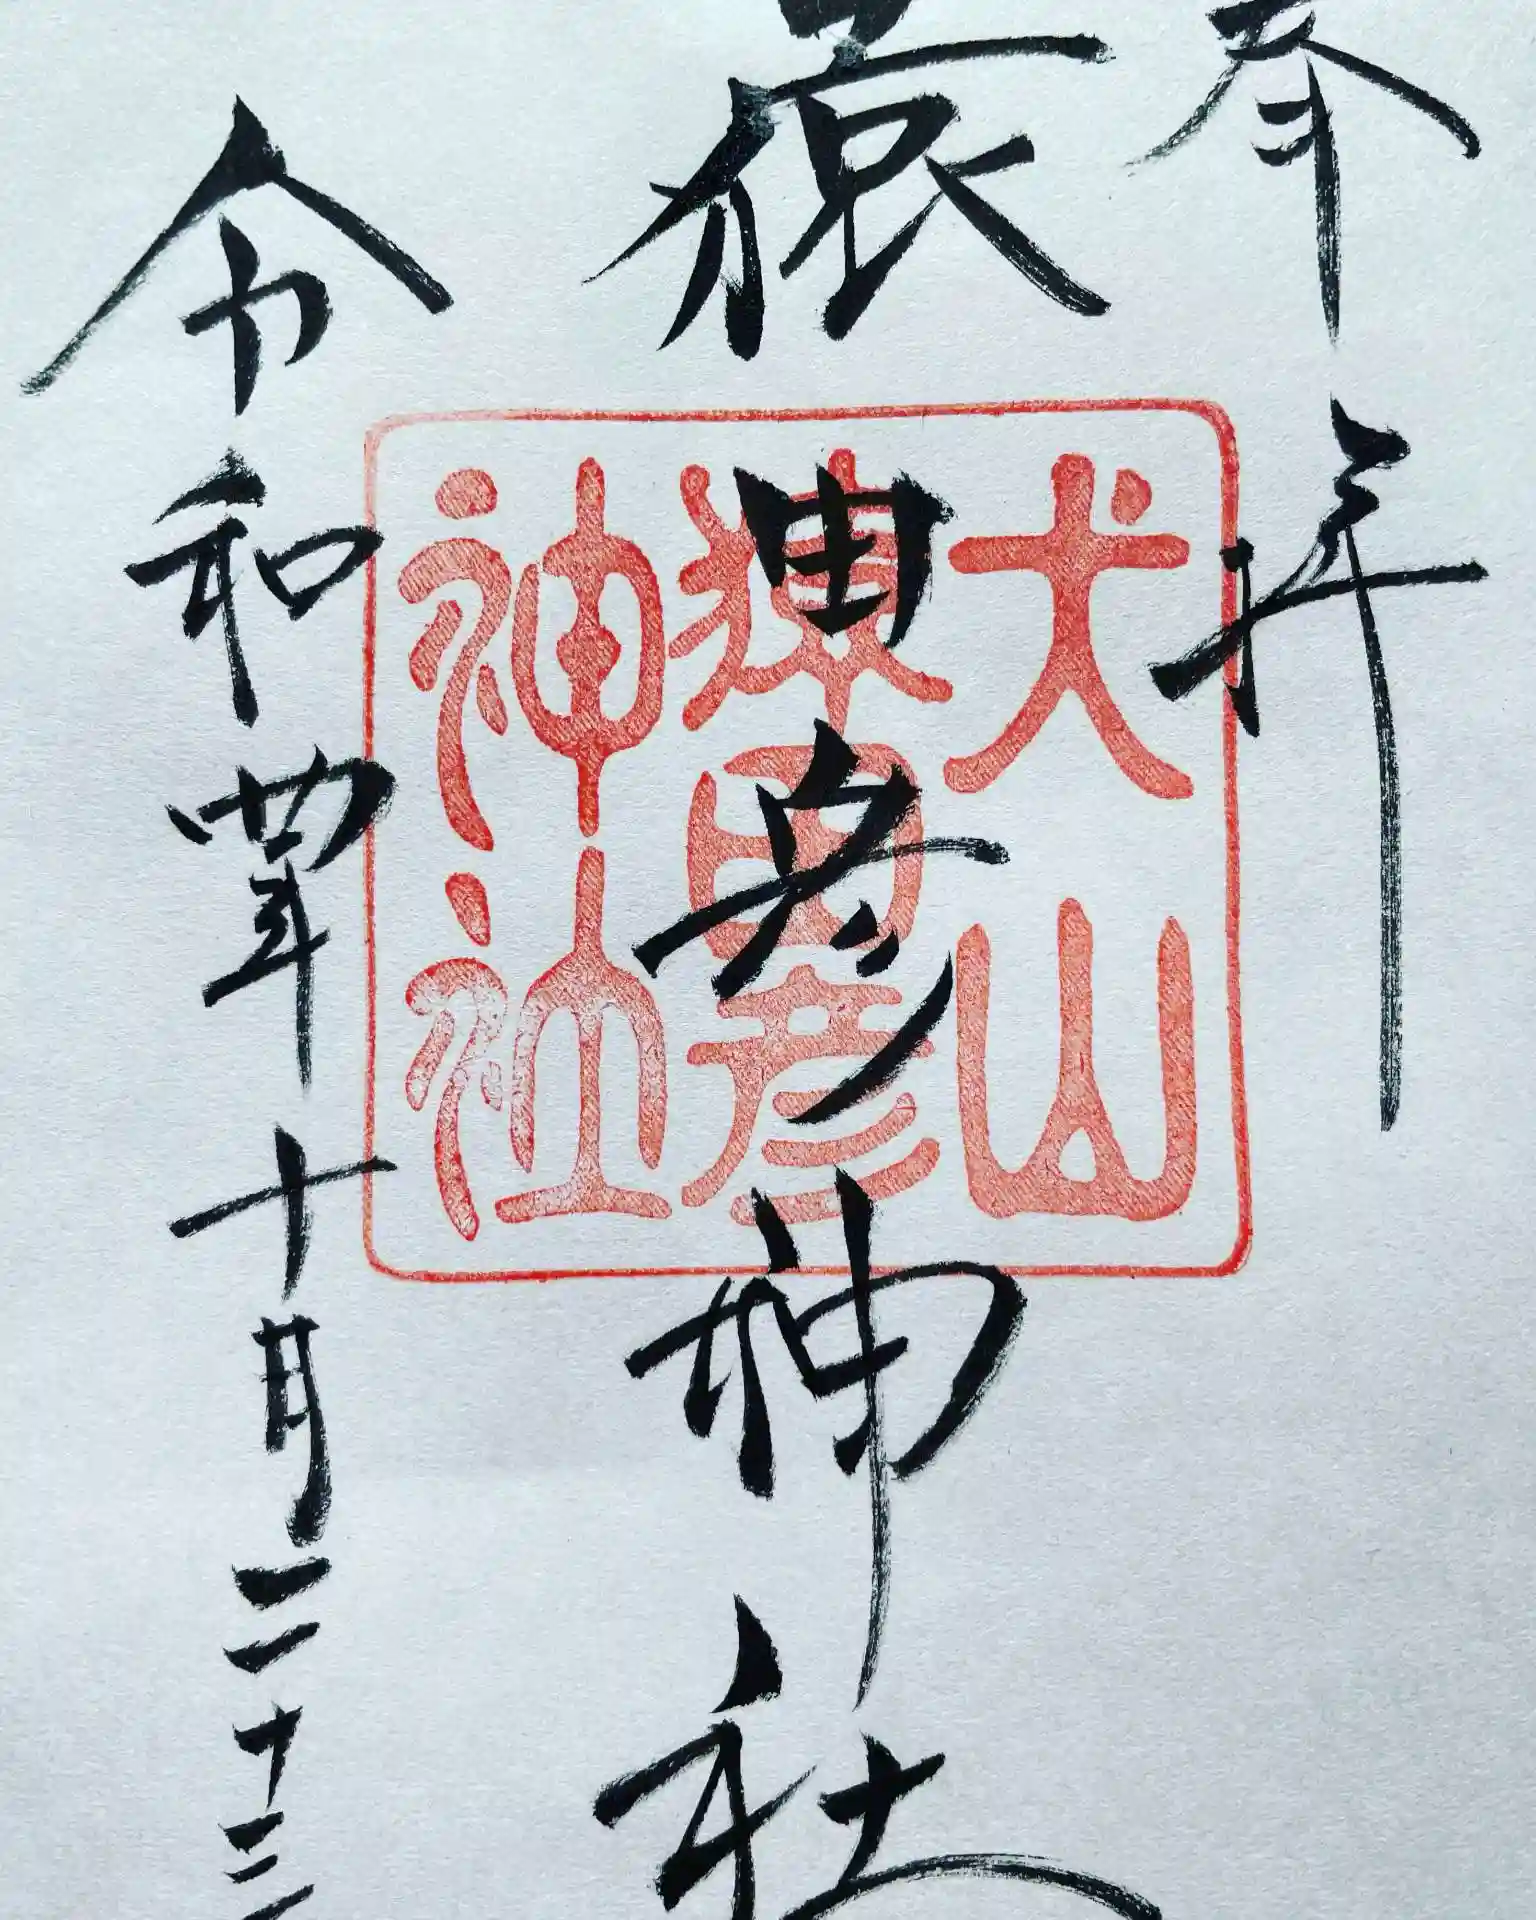 奉拝
猿田彦神社
犬山
猿田彦
神社
令和四年十月二十三